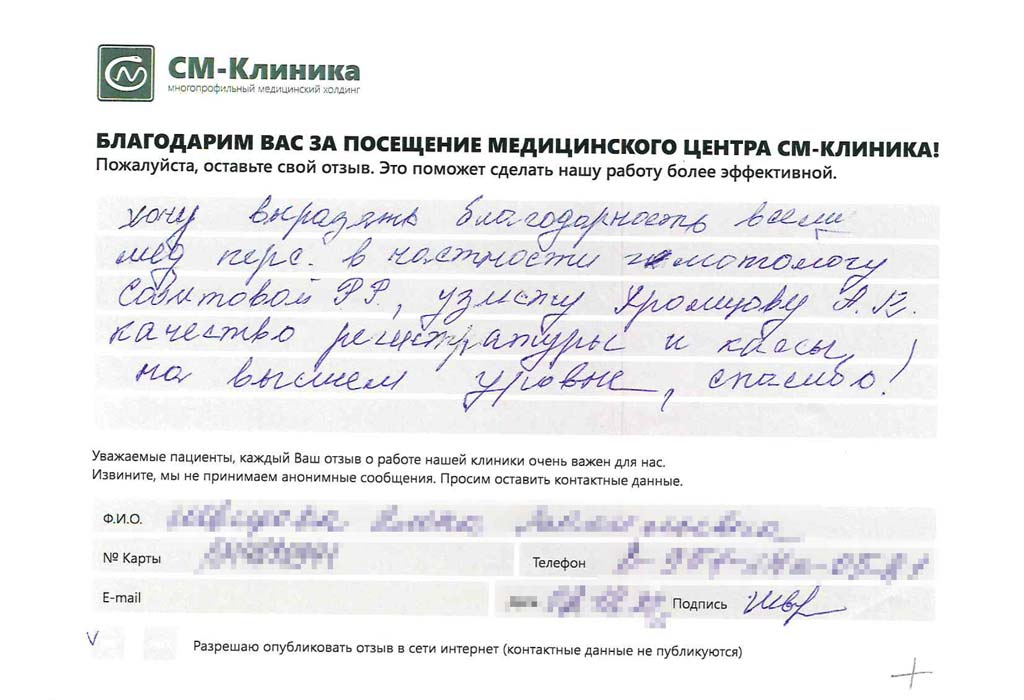 СМ-Клиника
многопрофильный медицинский холдинг
БЛАГОДАРИМ ВАС ЗА ПОСЕЩЕНИЕ МЕДИЦИНСКОГО ЦЕНТРА СМ-КЛИНИКА!
Пожалуйста, оставьте свой отзыв. Это поможет сделать нашу работу более эффективной.
хочу выразять благодарность всему
мед перс. в частности гемотологу
Совитовой Р.Р., узисту Хромцову А.К.
качество регистратуры и кассы,
на высшем уровне, спасибо!
Уважаемые пациенты, каждый Ваш отзыв о работе нашей клиники очень важен для нас.
Извините, мы не принимаем анонимные сообщения. Просим оставить контактные данные.
Ф.И.О.
№ Карты
Телефон
E-mail
Подпись
V
Разрешаю опубликовать отзыв в сети интернет (контактные данные не публикуются)